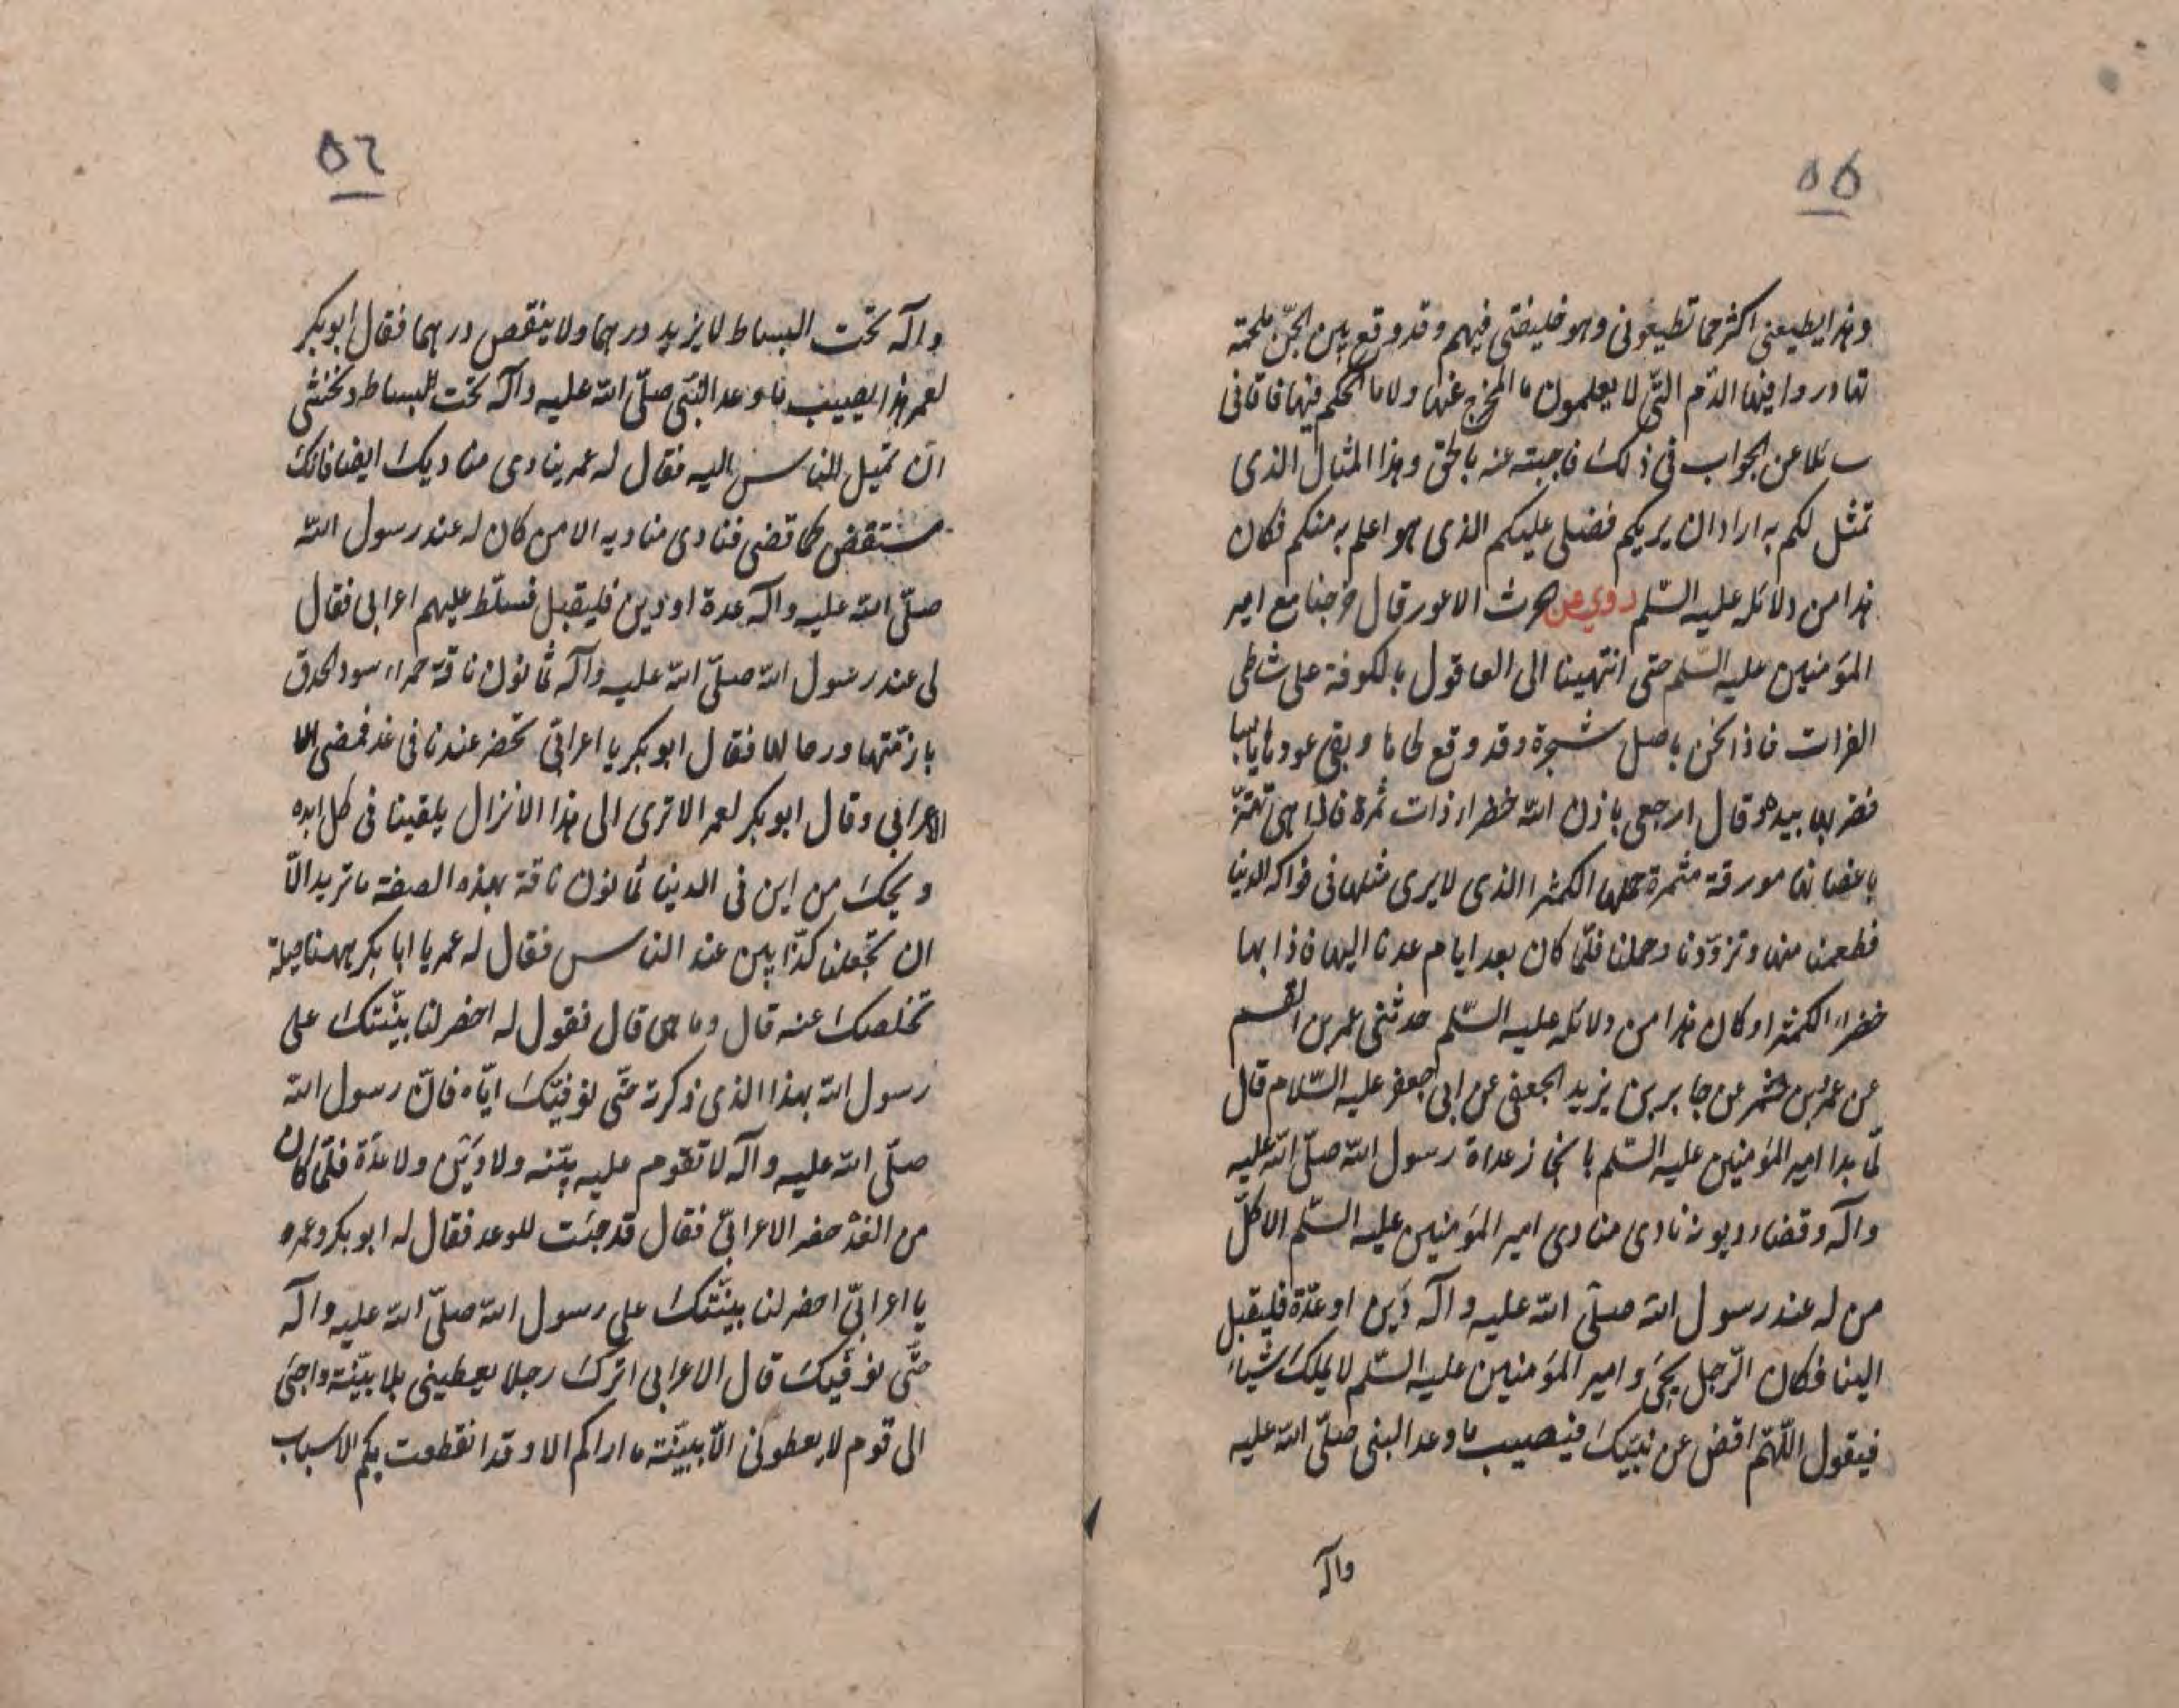 ٥٥
وهذا يطيعنى اكثر مما تطيعونى وهو خليفتى فيهم وقد وقع بين الجنّ ملحمة
تهادروا فيها الدّم التّى لا يعلمون ما المخرج عنها ولا ما الحكم فيها فاتانى
سائلا عن الجواب فى ذلك فاجبته عنه بالحق وهذا المثال الذى
تمثل لكم به اراد ان يريكم فضلى عليكم الذى هو اعلم به منكم فكان
هذا من دلائله عليه السّلم روي عن حرث الاعور قال خرجنا مع امير
المؤمنين عليه السّلم حتى انتهينا الى العاقول بالكوفة على شاطى
الفرات فاذا نحن باصل شجرة وقد وقع لحاها وبقى عودها يابسا
فضربها بيده وقال ارجعى باذن الله خضراء ذات ثمرة فاذا هى تهتزّ
باغصانها مورقة مثمرة حملها الكمثرا الذى لا يرى مثلها فى فواكه الدنيا
فطعمنا منها وتزوّدنا وحملنا فلمّا كان بعد ايام عدنا اليها فاذا بها
خضراء الكمثرا وكان هذا من دلائله عليه السّلم حدثنى عمر بن القسم
عن عمر بن شمر عن جابر بن يزيد الجعفى عن ابى جعفر عليه السّلام قال
لمّا بدا امير المؤمنين عليه السّلم بانجاز عداة رسول الله صلّى الله عليه
واله وقضاء ديونه نادى منادى امير المؤمنين عليه السّلم الا كلّ
من له عند رسول الله صلّى الله عليه واله دَين او عدّة فليقبل
الينا فكان الرّجل يجئ وامير المؤمنين عليه السّلم لا يملك شيئا
فيقول اللّهمّ اقض عن نبيّك فيصيب ما وعد النبى صلّى الله عليه
واله
٥٦
واله تحت البساط لا يزيد درهما ولا ينقص درهما فقال ابو بكر
لعمر هذا يصيب ما وعد النّبى صلّى الله عليه واله تحت البساط ونخشى
ان تميل الناس اليه فقال له عمر ينادى مناديك ايضا فانك
ستقضى كما قضى فنادى مناديه الا من كان له عند رسول الله
صلّى الله عليه واله عدة او دين فليقبل فسلّط عليهم اعرابى فقال
لى عند رسول الله صلّى الله عليه واله ثمانون ناقة حمراء سود الحدق
بازمّتها ورحالها فقال ابو بكر يا اعرابىّ تحضر عندنا فى غد فمضى
الاعرابى وقال ابو بكر لعمر الا ترى الى هذا الانزال يلقينا فى كل ابده
ويحك من اين فى الدنيا ثمانون ناقة بهذه الصفة ما تريد الّا
ان تجعلنا كذّابين عند الناس فقال له عمر يا ابا بكر ههنا حيلة
تخلصك عنه قال وما هى قال نقول له احضر لنا بيّنتك على
رسول الله بهذا الذى ذكرته حتّى نوفيّك ايّاه فانّ رسول الله
صلّى الله عليه واله لا تقوم عليه بيّنه ولا دَين ولا عدّة فلمّا كان
من الغد حضر الاعرابىّ فقال قد جئت للوعد فقال له ابو بكر وعمر
يا اعرابىّ احضر لنا بينّتك على رسول الله صلّى الله عليه واله
حتّى نوفّيك قال الاعرابى اترك رجلا يعطينى بلا بيّنة واجئ
الى قوم لا يعطونى الّا ببيّنة ما اراكم الا وقد انقطعت بكم الاسباب